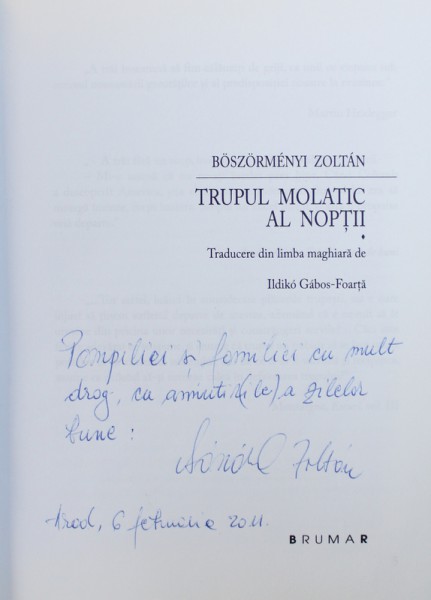 BÖSZÖRMÉNYI ZOLTÁN
TRUPUL MOLATIC
AL NOPȚII
Traducere din limba maghiară de
Ildikó Gábos-Foarță
Pompiliei și familiei cu mult
drag, ca amintir(ile) a zilelor
bune:
Zoltán
Arad, 6 februarie 2011.
BRUMAR